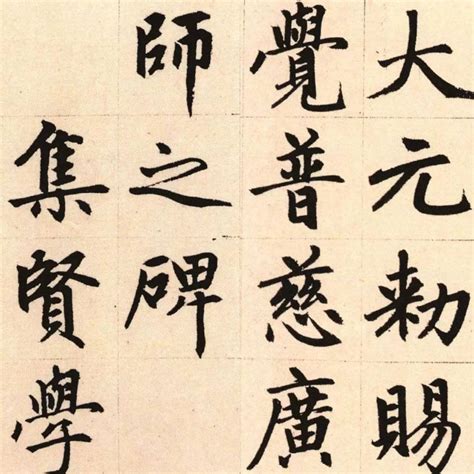 大元勑賜
覺普慈廣
師之碑
集賢學